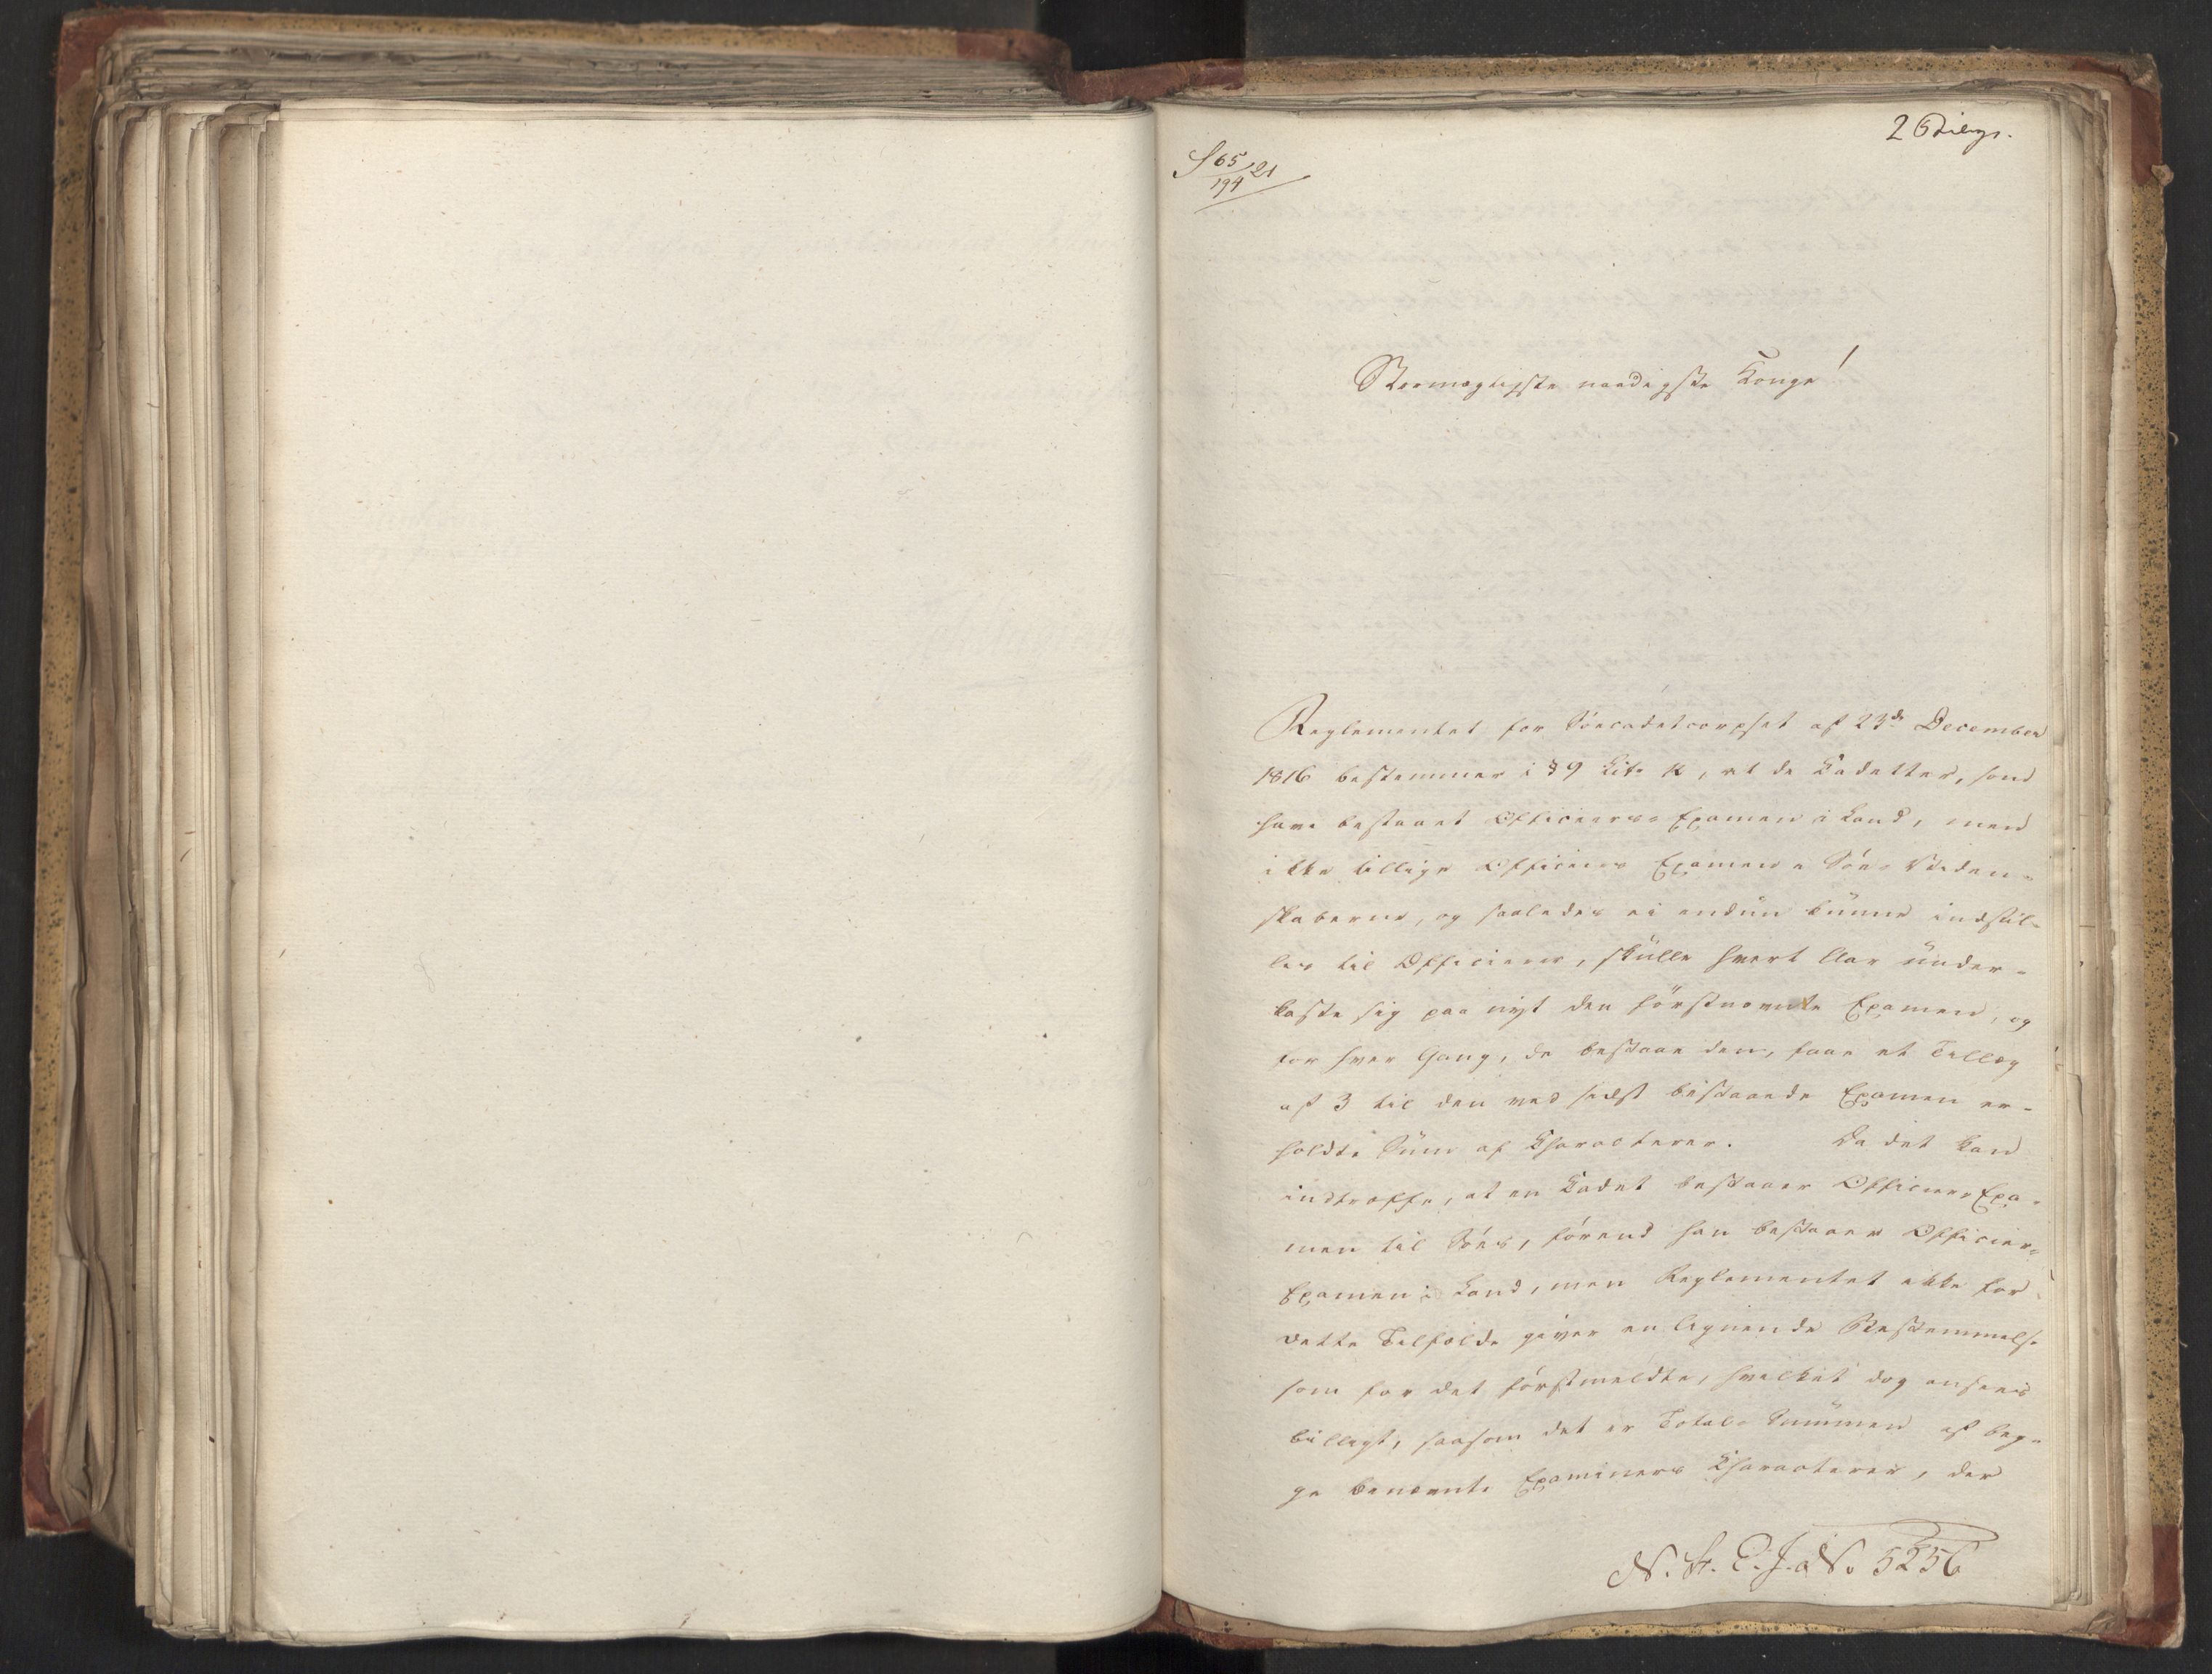 2 Bilage.
S 65/194 21
Stormægtigste naadigste Konge!
Reglementet for Søecadetcorpset af 23de December
1816 bestemmer i § 9 Litr. k, at de Kadetter, som
have bestaaet Officeers-Examen i Land, men
ikke tillige Officiers Examen i Søe-Viden-
skaberne, og saaledes ei endnu kunne indstil-
les til Officierer, skulle hvert Aar under-
kaste sig paa nyt den førstnævnte Examen, og
for hver Gang, de bestaae den, faae et Tillæg
af 3 til den ved sidst bestaaede Examen er-
holdte Sum af Characterer. Da det kan
indtræffe, at en Kadet bestaaer Officeers Exa-
men til Søes, førend han bestaaer Officier-
Examen i Land, men Reglementet ikke for
dette Tilfælde giver en lignende Bestemmelse
som for det førstmeldte, hvilket dog ansees
billigt, saasom det er Total-Summen af beg-
ge benævnte Examiners Characterer, der
N. St. E. J. No. 5256